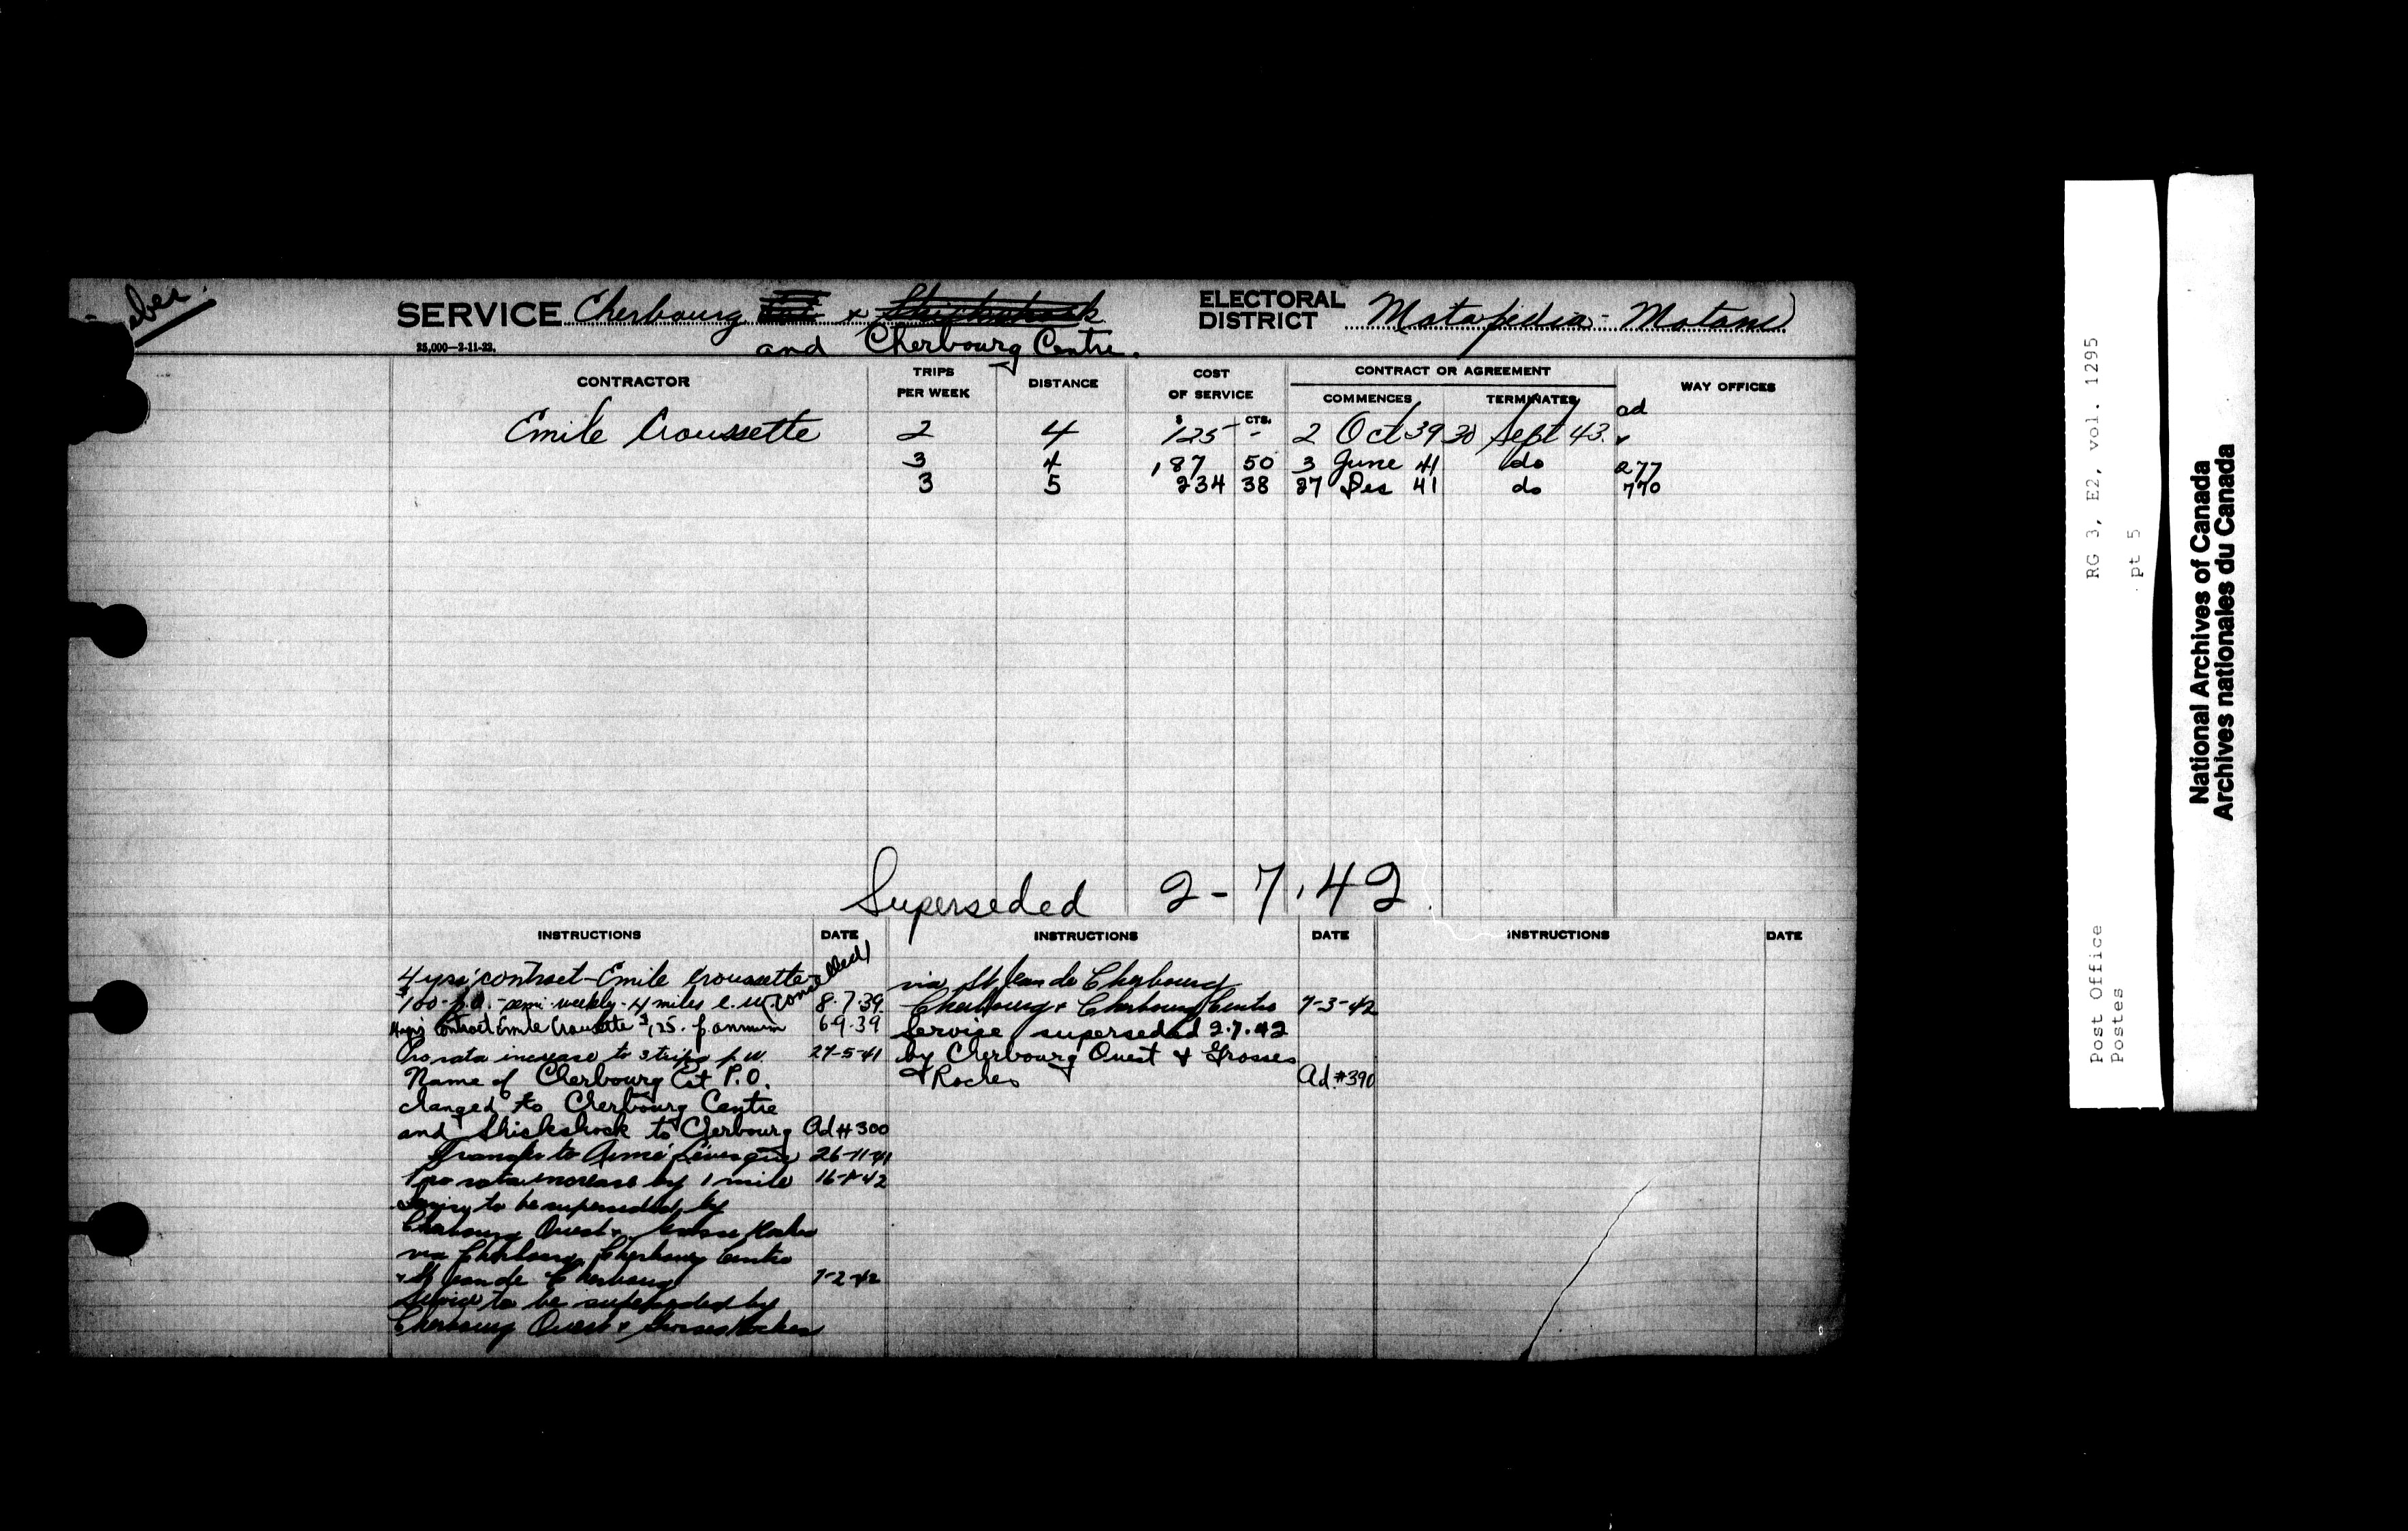 SERVICE Cherbourg Est & Shickshock
and Cherbourg Centre.
ELECTORAL DISTRICT Matapedia - Matane
25,000—2-11-22.
CONTRACTOR TRIPS PER WEEK DISTANCE COST OF SERVICE CONTRACT OR AGREEMENT WAY OFFICES
COMMENCES TERMINATES
$ CTS. ad
Emile Croussette 2 4 125 - 2 Oct 39 30 Sept 43.
3 4 187 50 3 June 41 do 277
3 5 234 38 27 Dec 41 do 770
Superseded 2-7.42
INSTRUCTIONS DATE INSTRUCTIONS DATE INSTRUCTIONS DATE
4 yrs' contract - Emile Croussette
$100 - p.a. - semi-weekly - 4 miles e.w. 8.7.39
4 yrs' contract Emile Croussette $125. p. annum 6.9.39
Pro rata increase to 3 trips p.w. 27-5-41
Name of Cherbourg Est P.O.
changed to Cherbourg Centre
and Shickshock to Cherbourg Ad # 300
Transfer to Aimé Lévesque 26-11-41
Pro rata increase by 1 mile 16-1-42
Service to be superseded by
Cherbourg Ouest & Grosses Roches
via Cherbourg, Cherbourg Centre
& St Jean de Cherbourg 7-2-42
Service to be superseded by
Cherbourg Ouest & Grosses Roches
via St Jean de Cherbourg
Cherbourg & Cherbourg Centre 7-3-42
Service superseded 2.7.42
by Cherbourg Ouest & Grosses
Roches Ad. #390
RG 3, E2, vol. 1295
pt 5
Post Office
Postes
National Archives of Canada
Archives nationales du Canada